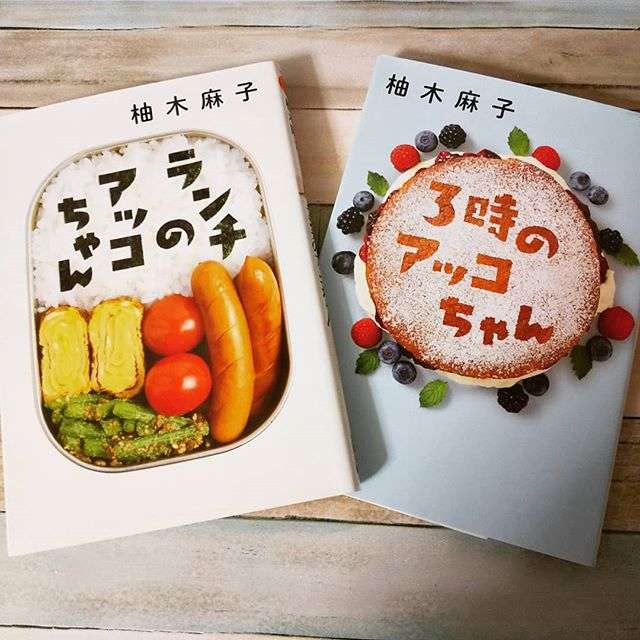 柚木麻子
ランチ
の
アッコ
ちゃん
柚木麻子
3時の
アッコ
ちゃん